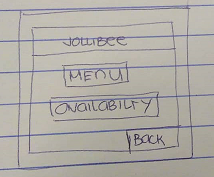 JOLLIBEE
MENU
AVAILABILTY
BACK